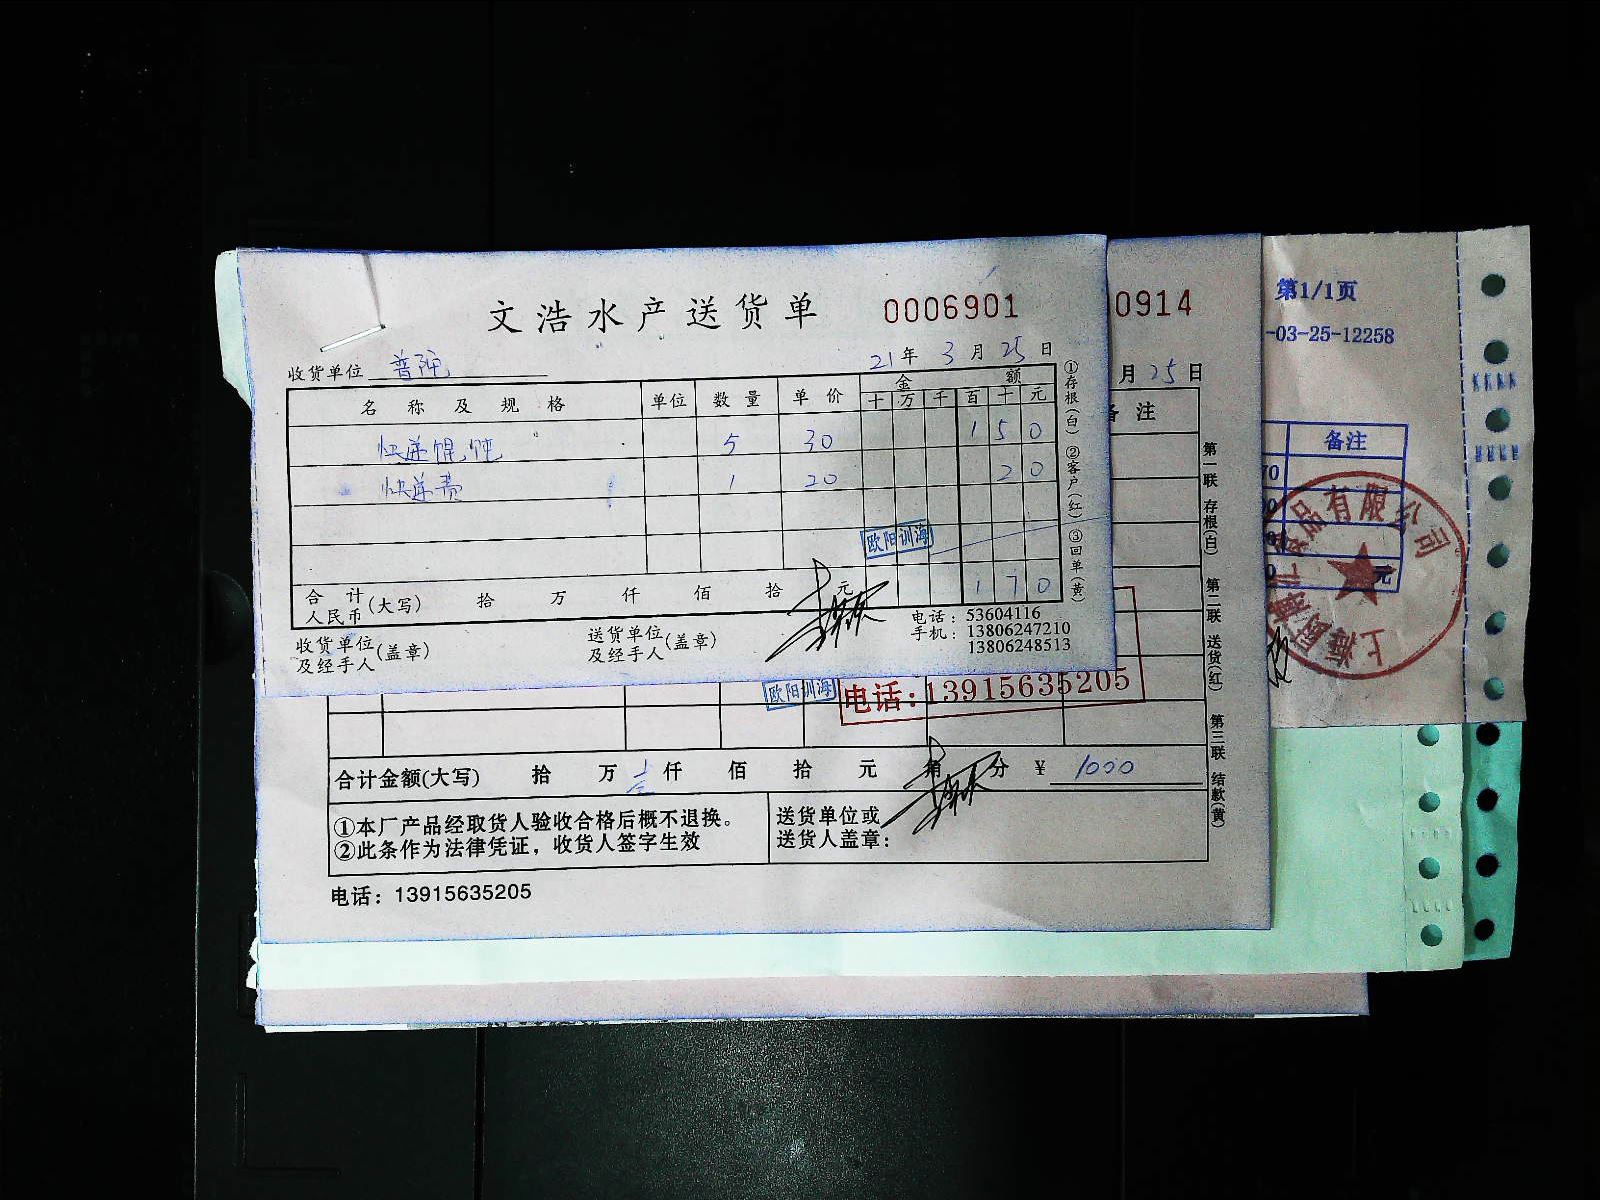 文浩水产送货单 0006901
收货单位 普陀 21年 3月 25日
名称及规格 单位 数量 单价 金额
十 万 千 百 十 元
快递馄饨 5 30 1 5 0
快递费 1 20 2 0
欧阳训海
合计人民币(大写) 拾 万 仟 佰 拾 元 1 7 0
收货单位及经手人(盖章) 送货单位及经手人(盖章)
电话：53604116
手机：13806247210
13806248513
①存根(白) ②客户(红) ③回单(黄)
0914
月25日
备注
欧阳训海
电话:13915635205
合计金额(大写) 拾 万 壹仟 佰 拾 元 角 分 ¥ 1000
①本厂产品经取货人验收合格后概不退换。
②此条作为法律凭证，收货人签字生效
送货单位或
送货人盖章：
电话：13915635205
第一联 存根(白) 第二联 送货(红) 第三联 结款(黄)
第1/1页
-03-25-12258
备注
70
元